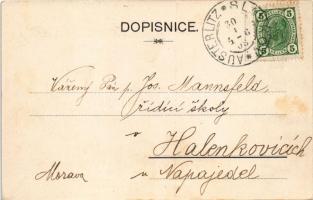 DOPISNICE.
AUSTERLITZ * SL
30
1
5
5
Vážený Pán p. Jos. Mannsfeld,
řídící školy
v Halenkovicích
Morava u Napajedel